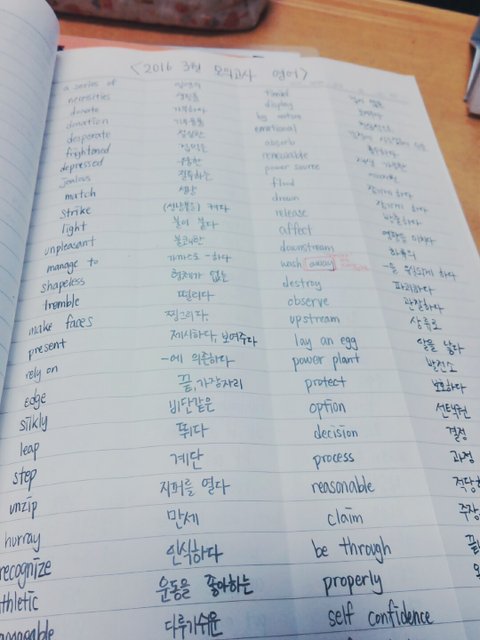 <2016 3월 모의고사 영어>
a series of 일련의 flooded
necessities 생필품 display
donate 기부하다 by nature
donation 기부물품 emotional
desperate 절실한 absorb
frightened 겁먹은 renewable
depressed 우울한 power source
jealous 질투하는 flood
match 성냥 drown
strike (성냥불을) 켜다 release
light 불이 붙다 affect
unpleasant 불쾌한 downstream 하류의
manage to 가까스로 -하다 wash away
shapeless 형체가 없는 destroy 파괴하다
tremble 떨리다 observe 관찰하다
make faces 찡그리다. upstream 상류로
present 제시하다, 보여주다 lay an egg 알을 낳다
rely on -에 의존하다 power plant 발전소
edge 끝, 가장자리 protect 보호하다
silkly 비단같은 option 선택권
leap 뛰다 decision 결정
step 계단 process 과정
unzip 지퍼를 열다 reasonable
hurray 만세 claim
recognize 인식하다 be through
athletic 운동을 좋아하는 properly
다루기쉬운 self confidence